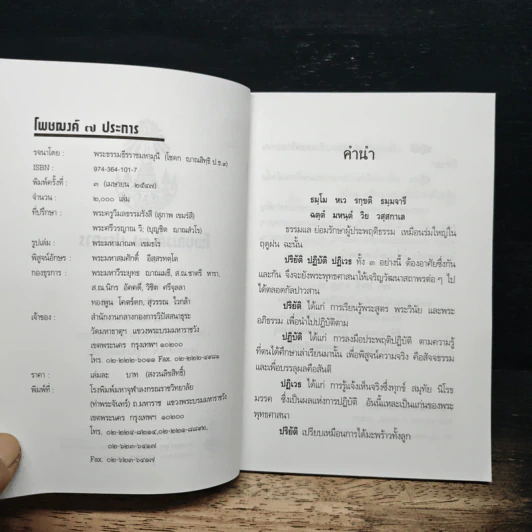 โพชฌงค์ ๗ ประการ
รจนาโดย : พระธรรมธีรราชมหามุนี (โชดก ญาณสิทฺธิ ป.ธ.๙)
ISBN : 974-364-101-7
พิมพ์ครั้งที่ : ๓ (เมษายน ๒๕๔๗)
จำนวน : ๒,๐๐๐ เล่ม
ที่ปรึกษา : พระครูวิมลธรรมรังสี (สุภาพ เขมรํสี)
พระครีวรญาณ วิ. (บุญชิต ญาณสํวโร)
รูปเล่ม : พระมหามาณพ เขมธโร
พิสูจน์อักษร : พระมหาสมศักดิ์ อิสฺสรทตฺโต
กองธุรการ : พระมหาวีระยุทธ ญาณเมธี, ส.ณ.ชาตรี หาร
ส.ณ.นิกร อัคคดี, วิชิต ศรีจุลลา
ทองพูน โคตร์ดก, สุวรรณ ไวกล้า
เจ้าของ : สำนักงานกลางกองการวิปัสสนาธุระ
วัดมหาธาตุฯ แขวงพระบรมมหาราชวัง
เขตพระนคร กรุงเทพฯ ๑๐๒๐๐
โทร. ๐๒-๒๒๒-๖๐๑๑ Fax. ๐๒-๒๒๒-๔๙๘๑
ราคา : เล่มละ บาท (สงวนลิขสิทธิ์)
พิมพ์ที่ : โรงพิมพ์มหาจุฬาลงกรณราชวิทยาลัย
(ท่าพระจันทร์) ถ.มหาราช แขวงพระบรมมหาราชวัง
เขตพระนคร กรุงเทพฯ ๑๐๒๐๐
โทร. ๐๒-๒๒๔-๘๒๑๔,๐๒-๒๒๑-๘๘๙๒,
๐๒-๖๒๓-๖๔๑๗
Fax. ๐๒-๖๒๓-๖๔๑๗
คำนำ
ธมฺโม หเว รกฺขติ ธมฺมจารึ
ฉตฺตํ มหนฺตํ วิย วสฺสกาเล
ธรรมแล ย่อมรักษาผู้ประพฤติธรรม เหมือนร่มใหญ่ใน
ฤดูฝน ฉะนั้น
ปริยัติ ปฏิบัติ ปฏิเวธ ทั้ง ๓ อย่างนี้ ต้องอาศัยซึ่งกัน
และกัน จึงจะยังพระพุทธศาสนาให้เจริญวัฒนาสถาพรต่อ ๆ ไป
ได้ตลอดกัลปาวสาน
ปริยัติ ได้แก่ การเรียนรู้พระสูตร พระวินัย และพระ
อภิธรรม เพื่อนำไปปฏิบัติตาม
ปฏิบัติ ได้แก่ การลงมือประพฤติปฏิบัติ ตามความรู้
ที่ตนได้ศึกษาเล่าเรียนมานั้น เพื่อพิสูจน์ความจริง คือสัจจธรรม
และเพื่อบรรลุผลคือสันติ
ปฏิเวธ ได้แก่ การรู้แจ้งเห็นจริงซึ่งทุกข์ สมุทัย นิโรธ
มรรค ซึ่งเป็นผลแห่งการปฏิบัติ อันนี้แหละเป็นแก่นของพระ
พุทธศาสนา
ปริยัติ เปรียบเหมือนการได้มะพร้าวทั้งลูก